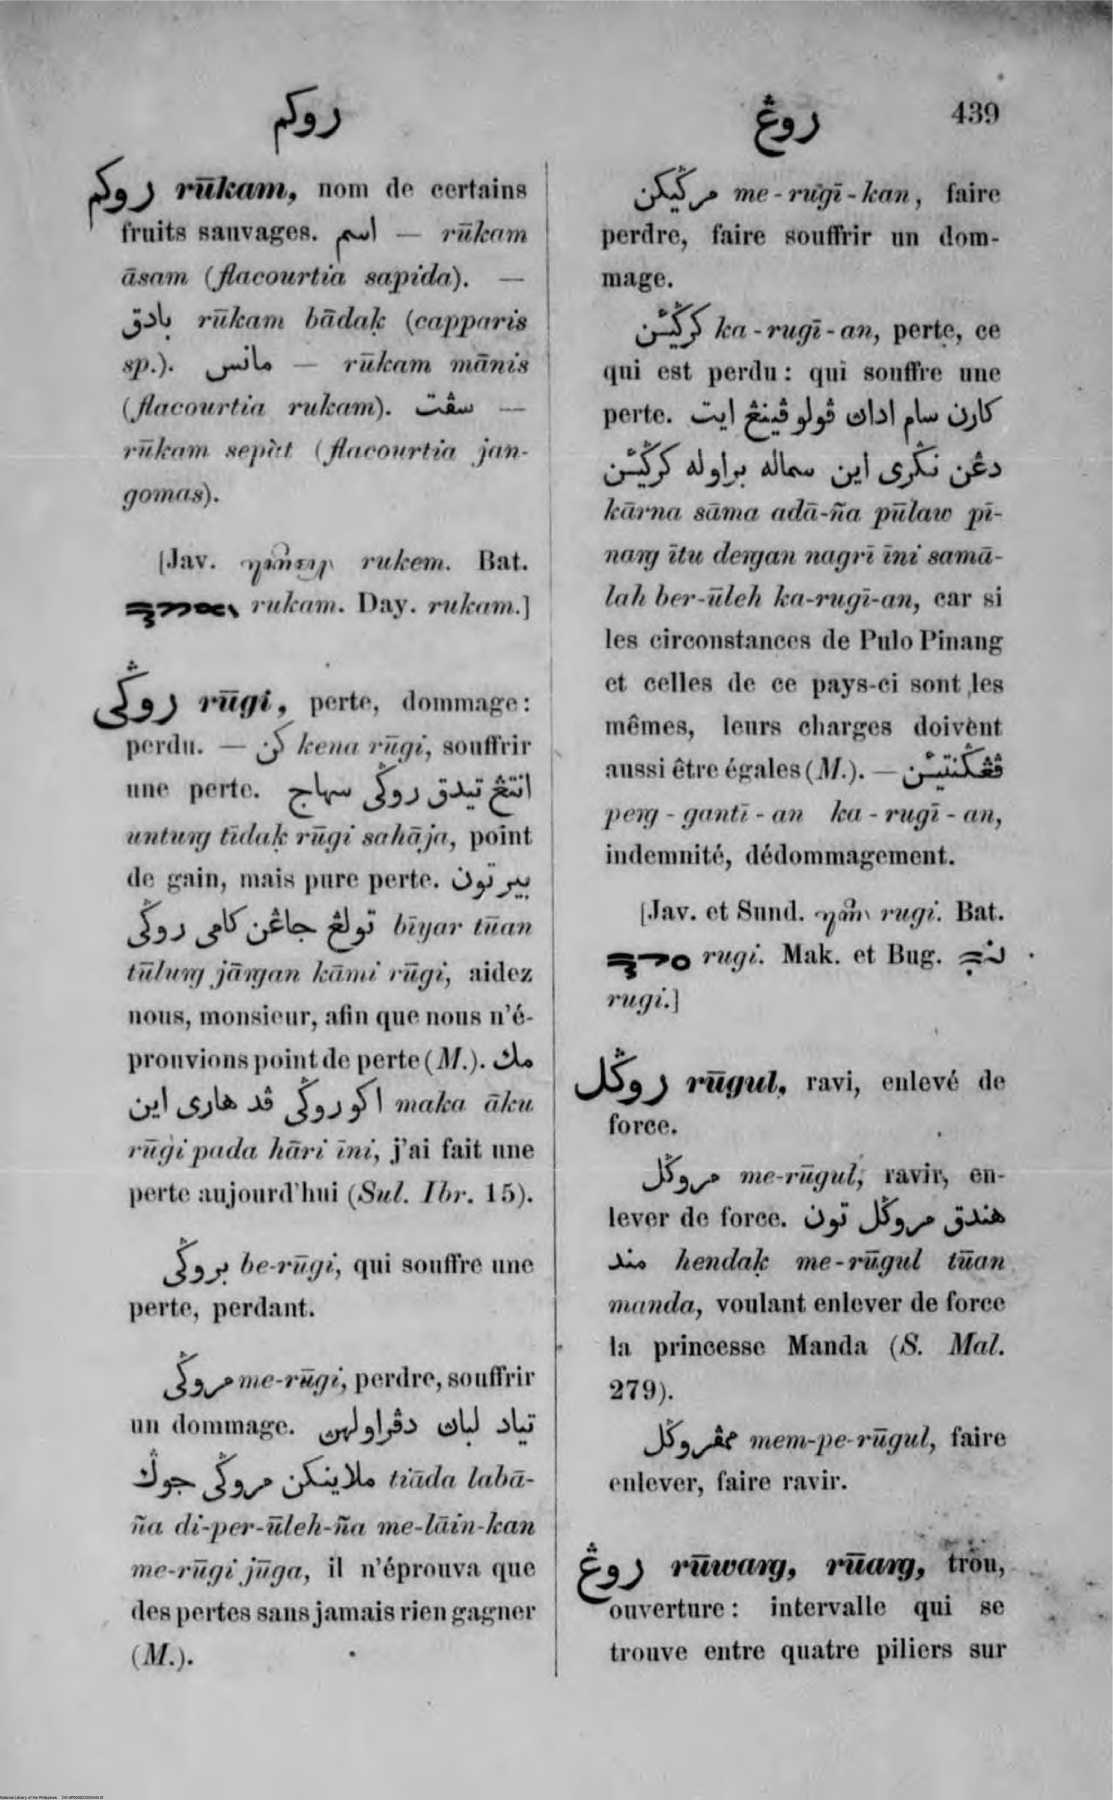 روكم
روڠ 439
روكم rūkam, nom de certains
fruits sauvages. اسم — rūkam
āsam (flacourtia sapida). —
بادق rūkam bādaḳ (capparis
sp.). مانس — rūkam mānis
(flacourtia rukam). سڤت —
rūkam sepàt (flacourtia jan-
gomas).
[Jav. rukem. Bat.
rukam. Day. rukam.]
روݢى rūgi, perte, dommage:
perdu. — كن kena rūgi, souffrir
une perte. انتڠ تيدق روݢى سهاج
untung tīdaḳ rūgi sahāja, point
de gain, mais pure perte. بير تون
تولڠ جاڠن كامى روݢى bīyar tūan
tūlung jāngan kāmi rūgi, aidez
nous, monsieur, afin que nous n'é-
prouvions point de perte (M.). مك
اكو روݢى ڤد هارى اين maka āku
rūgi pada hāri īni, j'ai fait une
perte aujourd'hui (Sul. Ibr. 15).
بروݢى be-rūgi, qui souffre une
perte, perdant.
مروݢى me-rūgi, perdre, souffrir
un dommage. تياد لباڽ دڤراولهڽ
ملاينكن مروݢى جوݢ tiāda labā-
ña di-per-ūleh-ña me-lāin-kan
me-rūgi jūga, il n'éprouva que
des pertes sans jamais rien gagner
(M.).
مرݢيكن me-rugī-kan, faire
perdre, faire souffrir un dom-
mage.
كرݢيئن ka-rugī-an, perte, ce
qui est perdu: qui souffre une
perte. كارن سام اداڽ ڤولو ڤينڠ ايت
دڠن نݢرى اين سماله براوله كرݢيئن
kārna sāma adā-ña pūlaw pī-
nang ītu dengan nagrī īni samā-
lah ber-ūleh ka-rugī-an, car si
les circonstances de Pulo Pinang
et celles de ce pays-ci sont les
mêmes, leurs charges doivent
aussi être égales (M.). — ڤڠݢنتيئن
peng-gantī-an ka-rugī-an,
indemnité, dédommagement.
[Jav. et Sund. rugi. Bat.
rugi. Mak. et Bug.
rugi.]
روݢل rūgul, ravi, enlevé de
force.
مروݢل me-rūgul, ravir, en-
lever de force. هندق مروݢل تون
مند hendaḳ me-rūgul tūan
manda, voulant enlever de force
la princesse Manda (S. Mal.
279).
ممڤروݢل mem-pe-rūgul, faire
enlever, faire ravir.
روڠ rūwang, rūang, trou,
ouverture: intervalle qui se
trouve entre quatre piliers sur